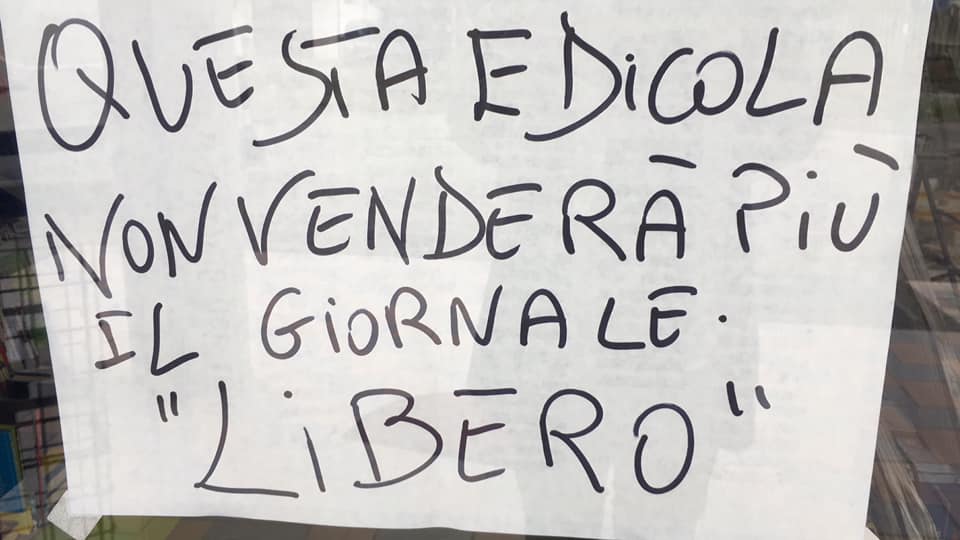 QUESTA EDiCOLA
NON VENDERÀ PiÙ
IL GiORNALE.
"LiBERO"